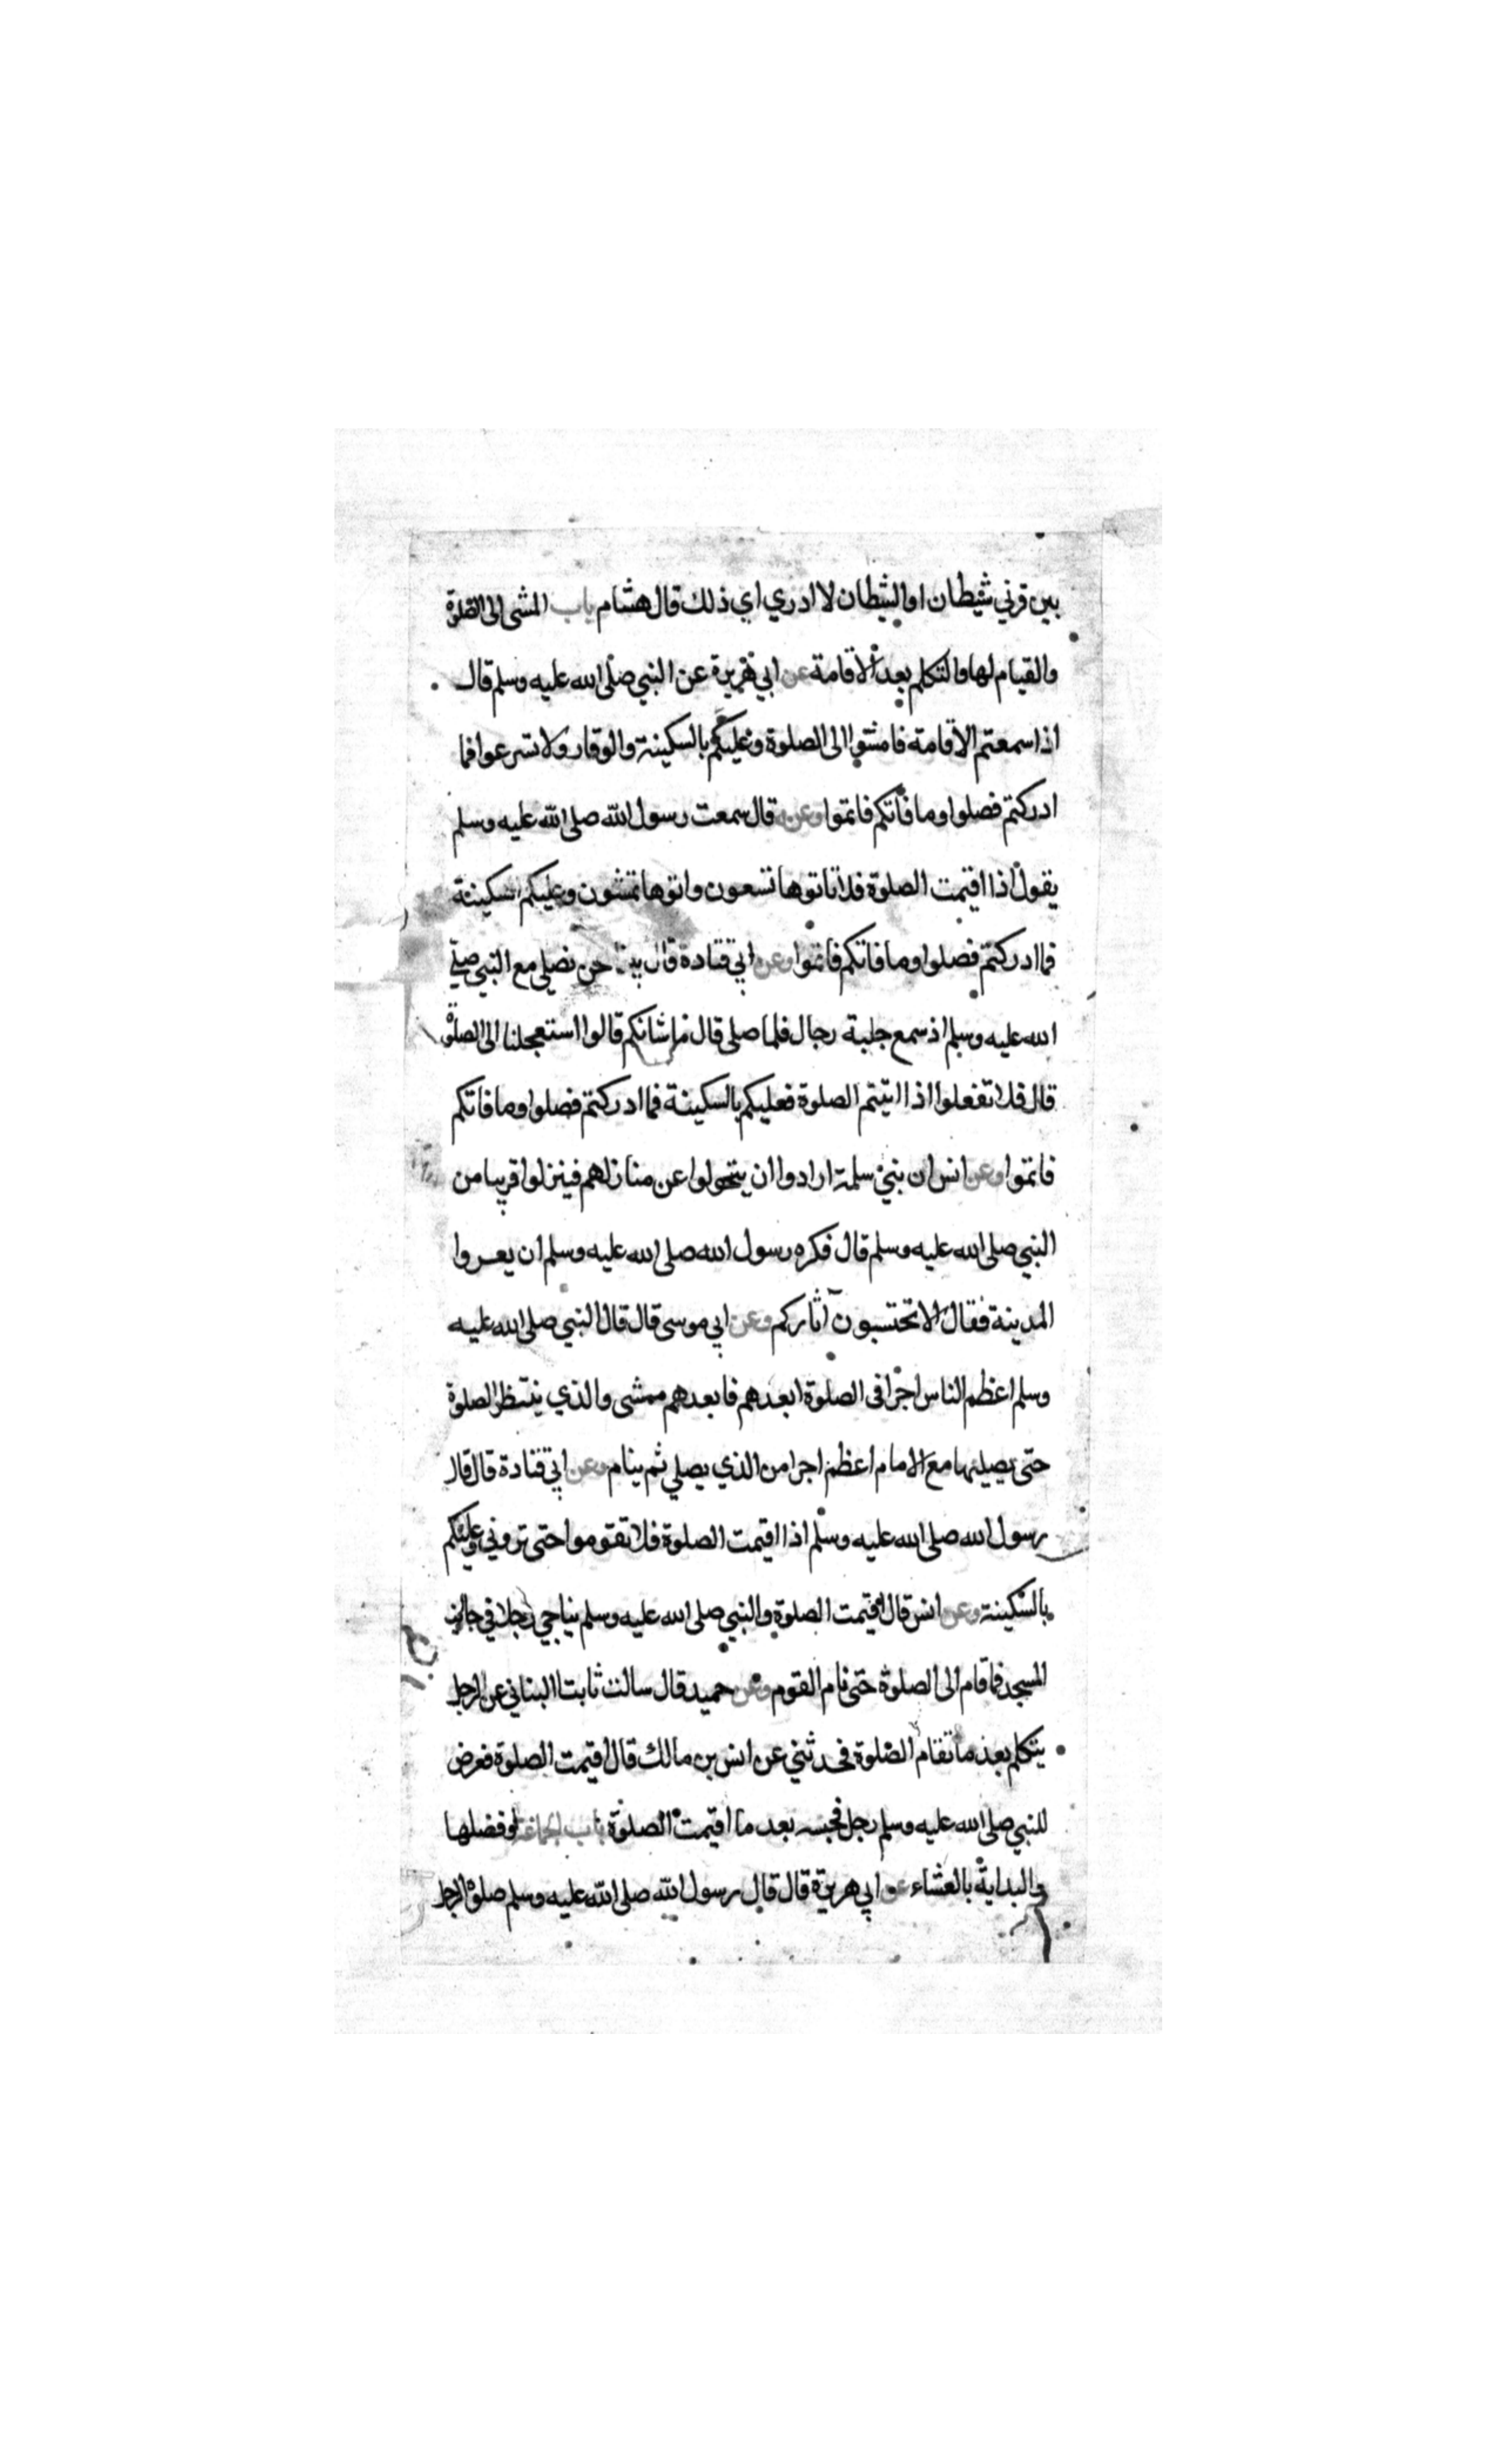 بين قرني شيطان او الشيطان لا ادري اي ذلك قال هشام باب المشى الى الصلوة
والقيام لها والتكلم بعد الاقامة عن ابي هريرة عن النبي صلى الله عليه وسلم قال
اذا سمعتم الاقامة فامشوا الى الصلوة وعليكم بالسكينة والوقار ولا تسرعوا فما
ادركتم فصلوا وما فاتكم فاتموا وعنه قال سمعت رسول الله صلى الله عليه وسلم
يقول اذا اقيمت الصلوة فلا تاتوها تسعون واتوها تمشون وعليكم السكينة
فما ادركتم فصلوا وما فاتكم فاتموا وعن ابي قتادة قال بينا نحن نصلي مع النبي صلى
الله عليه وسلم اذ سمع جلبة رجال فلما صلى قال ما شانكم قالوا استعجلنا الى الصلوة
قال فلا تفعلوا اذا اتيتم الصلوة فعليكم بالسكينة فما ادركتم فصلوا وما فاتكم
فاتموا وعن انس ان بني سلمة ارادوا ان يتحولوا عن منازلهم فينزلوا قريبا من
النبي صلى الله عليه وسلم قال فكره رسول الله صلى الله عليه وسلم ان يعروا
المدينة فقال الا تحتسبون آثاركم وعن ابي موسى قال قال النبي صلى الله عليه
وسلم اعظم الناس اجرا في الصلوة ابعدهم فابعدهم ممشى والذي ينتظر الصلوة
حتى يصليها مع الامام اعظم اجرا من الذي يصلي ثم ينام وعن ابي قتادة قال قال
رسول الله صلى الله عليه وسلم اذا اقيمت الصلوة فلا تقوموا حتى تروني وعليكم
بالسكينة وعن انس قال اقيمت الصلوة والنبي صلى الله عليه وسلم يناجي رجلا في جانب
المسجد فما قام الى الصلوة حتى نام القوم وعن حميد قال سالت ثابتا البناني عن الرجل
يتكلم بعد ما تقام الصلوة فحدثني عن انس بن مالك قال اقيمت الصلوة فعرض
للنبي صلى الله عليه وسلم رجل فحبسه بعد ما اقيمت الصلوة باب الجماعة وفضلها
والبداية بالعشاء عن ابي هريرة قال قال رسول الله صلى الله عليه وسلم صلوة الرجل